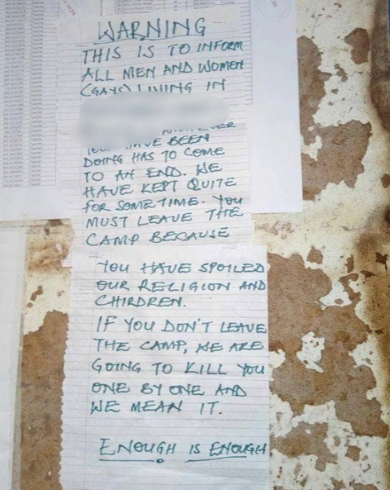 WARNING
THIS IS TO INFORM
ALL MEN AND WOMEN
(GAYS) LIVING IN
HAVE BEEN
DOING HAS TO COME
TO AN END. WE
HAVE KEPT QUITE
FOR SOMETIME. YOU
MUST LEAVE THE
CAMP BECAUSE
YOU HAVE SPOILED
OUR RELIGION AND
CHIRDREN.
IF YOU DON'T LEAVE
THE CAMP, WE ARE
GOING TO KILL YOU
ONE BY ONE AND
WE MEAN IT.
ENOUGH IS ENOUGH